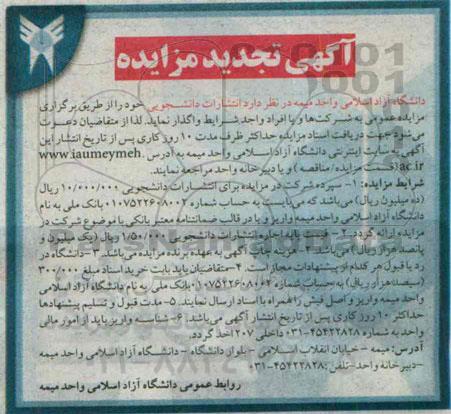 آگهی تجدید مزایده
دانشگاه آزاد اسلامی واحد میمه در نظر دارد انتشارات دانشجویی خود را از طریق برگزاری
مزایده عمومی به شرکت‌ها و یا افراد واجد شرایط واگذار نماید. لذا از متقاضیان دعوت
می‌شود جهت دریافت اسناد مزایده حداکثر ظرف مدت ۱۰ روز کاری پس از تاریخ انتشار این
آگهی به سایت اینترنتی دانشگاه آزاد اسلامی واحد میمه به آدرس www.iaumeymeh.
ac.ir(قسمت مزایده/مناقصه) و یا دبیرخانه واحد مراجعه نمایند.
شرایط مزایده: ۱- سپرده شرکت در مزایده برای انتشارات دانشجویی ۱۰/۰۰۰/۰۰۰ ریال
(ده میلیون ریال) می‌باشد که می‌بایست به حساب شماره ۰۱۰۷۵۲۲۶۰۸۰۰۲ بانک ملی به نام
دانشگاه آزاد اسلامی واحد میمه واریز و یا در قالب ضمانتنامه معتبر بانکی با موضوع شرکت در
مزایده ارائه گردد. ۲- قیمت پایه اجاره انتشارات دانشجویی ۱/۵۰۰/۰۰۰ ریال (یک میلیون و
پانصد هزار ریال) می‌باشد. ۳- هزینه چاپ آگهی به عهده برنده مزایده می‌باشد. ۳- دانشگاه در
رد یا قبول هر کدام از پیشنهادات مجاز است. ۴- متقاضیان باید بابت خرید اسناد مبلغ ۳۰۰/۰۰۰
(سیصد هزار ریال) به حساب شماره ۰۱۰۷۵۲۲۶۰۸۰۰۲ بانک ملی به نام دانشگاه آزاد اسلامی
واحد میمه واریز و اصل فیش را همراه با اسناد ارسال نمایند. ۵- مدت قبول و تسلیم پیشنهادها
حداکثر ۱۰ روز کاری پس از تاریخ انتشار آگهی می‌باشد. ۶- شناسه واریز باید از امور مالی
واحد به شماره ۴۵۴۲۲۸۲۸-۰۳۱ داخلی ۲۰۷ اخذ گردد.
آدرس: میمه - خیابان انقلاب اسلامی - بلوار دانشگاه - دانشگاه آزاد اسلامی واحد میمه
-دبیرخانه واحد-تلفن: ۴۵۴۲۲۸۲۸-۰۳۱
روابط عمومی دانشگاه آزاد اسلامی واحد میمه